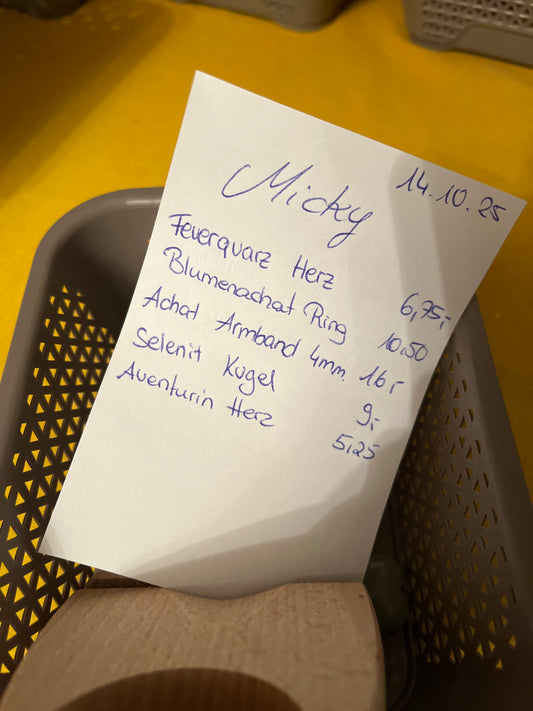 14.10.25
Micky
Feuerquarz Herz 6,75,-
Blumenachat Ring 10,50
Achat Armband 4mm. 16,-
Selenit Kugel 9,-
Aventurin Herz 5,25